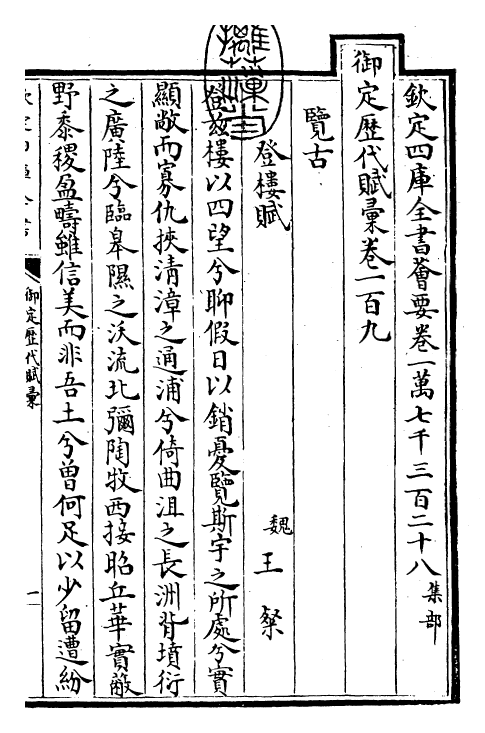 欽定四庫全書薈要卷一萬七千三百二十八 集部
御定歷代賦彙卷一百九
覽古
登樓賦 魏 王粲
登茲樓以四望兮聊假日以銷憂覽斯宇之所處兮實
顯敞而寡仇挾清漳之通浦兮倚曲沮之長洲背墳衍
之廣陸兮臨皋隰之沃流北彌陶牧西接昭丘華實蔽
野黍稷盈疇雖信美而非吾土兮曾何足以少留遭紛
御定歷代賦彙
一